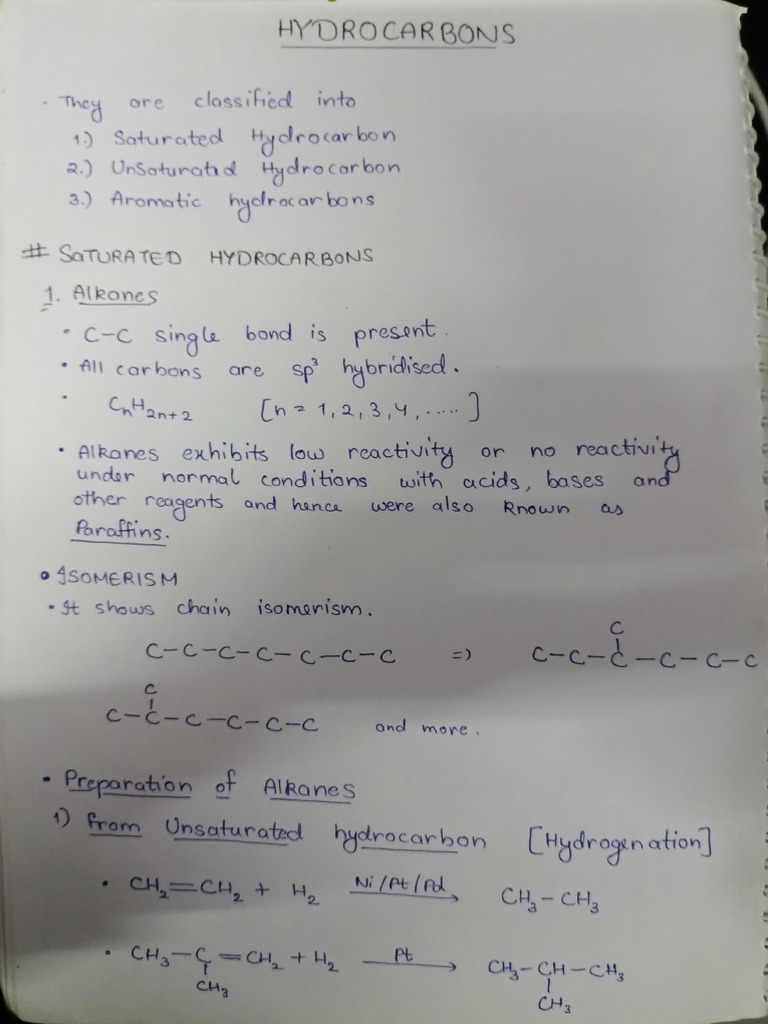 HYDROCARBONS
· They are classified into
1.) Saturated Hydrocarbon
2.) UnSaturated Hydrocarbon
3.) Aromatic hydrocarbons
# SATURATED HYDROCARBONS
1. Alkanes
• C-C single bond is present.
• All carbons are sp³ hybridised.
• CₙH₂ₙ₊₂ [n = 1, 2, 3, 4, .....]
• Alkanes exhibits low reactivity or no reactivity
under normal conditions with acids, bases and
other reagents and hence were also known as
Paraffins.
• ISOMERISM
• It shows chain isomerism.
C
C-C-C-C-C-C-C => C-C-C-C-C-C
C
C-C-C-C-C-C and more.
• Preparation of Alkanes
1) from Unsaturated hydrocarbon [Hydrogenation]
• CH₂=CH₂ + H₂ Ni/Pt/Pd → CH₃-CH₃
• CH₃-C=CH₂ + H₂ Pt → CH₃-CH-CH₃
CH₃ CH₃